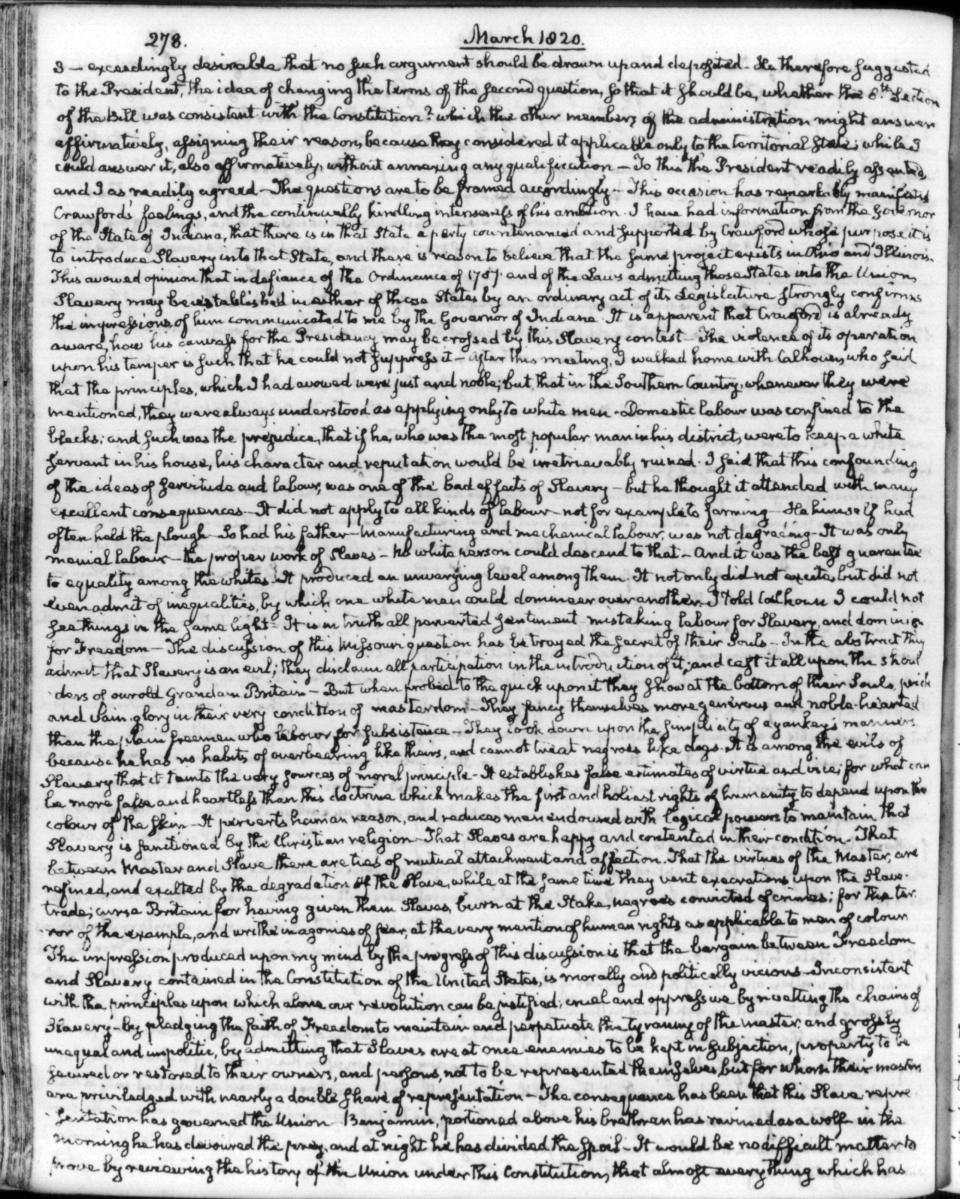 278. March 1820.
3 — exceedingly desirable that no such argument should be drawn up and deposited — He therefore suggested
to the President, the idea of changing the terms of the second question, so that it should be, whether the 8th Section
of the Bill was consistent with the Constitution? which the other members of the administration might answer
affirmatively, assigning their reason, because they considered it applicable only to the territorial State; while I
could answer it, also affirmatively, without annexing any qualification — To this the President readily assented,
and I as readily agreed — The questions are to be framed accordingly — This occasion has remarkably manifested
Crawford's feelings, and the continually kindling intenseness of his ambition. I have had information from the Governor
of the State of Indiana, that there is in that State a party countenanced and supported by Crawford whose purpose it is
to introduce Slavery into that State, and there is reason to believe that the same project exists in Ohio and Illinois.
This avowed opinion that in defiance of the Ordinance of 1787. and of the Laws admitting those States into the Union,
Slavery may be established in either of those States by an ordinary act of its Legislature strongly confirms
the impressions of him communicated to me by the Governor of Indiana. It is apparent that Crawford is already
aware, how his canvass for the Presidency may be crossed by this Slavery contest — The violence of its operation
upon his temper is such that he could not suppress it — After this meeting, I walked home with Calhoun, who said
that the principles, which I had avowed were just and noble; but that in the Southern Country, whenever they were
mentioned, they were always understood as applying only to white men — Domestic labour was confined to the
blacks; and such was the prejudice, that if he, who was the most popular man in his district, were to keep a white
servant in his house, his character and reputation would be irretrievably ruined. I said that this confounding
of the ideas of servitude and labour, was one of the bad effects of Slavery — but he thought it attended with many
excellent consequences — It did not apply to all kinds of labour — not for example to farming — He himself had
often held the plough — So had his father — Manufacturing and mechanical labour, was not degrading — It was only
menial labour — the proper work of Slaves — No white person could descend to that — And it was the best guarantee
to equality among the whites. It produced an unvarying level among them. It not only did not excite, but did not
even admit of inequalities, by which one white man could domineer over another — I told Calhoun I could not
see things in the same light — It is in truth all perverted sentiment — mistaking labour for Slavery, and dominion
for Freedom — The discussion of this Missouri question has betrayed the secret of their Souls — In the abstract they
admit that Slavery is an evil; they disclaim all participation in the introduction of it, and cast it all upon, the shoul
ders of our old Grandam Britain — But when probed to the quick upon it they show at the bottom of their Souls, pride
and vain-glory in their very condition of masterdom — They fancy themselves more generous and noble-hearted
than the plain freemen who labour for subsistence — They look down upon the simplicity of a yankey's manners
because he has no habits of overbearing like theirs, and cannot treat negroes like dogs — It is among the evils of
Slavery that it taints the very sources of moral principle — It establishes false estimates of virtue and vice; for what can
be more false and heartless than this doctrine which makes the first and holiest rights of humanity to depend upon the
colour of the skin — It perverts human reason, and reduces men endowed with logical powers to maintain that
Slavery is sanctioned by the Christian religion — That Slaves are happy and contented in their condition. That
between Master and Slave there are ties of mutual attachment and affection. That the virtues of the Master, are
refined, and exalted by the degradation of the Slave, while at the same time they vent execrations upon the Slave-
trade; curse Britain for having given them Slaves, burn at the Stake, negroes convicted of crimes; for the ter
ror of the example, and writhe in agonies of fear, at the very mention of human rights as applicable to men of colour
The impression produced upon my mind by the progress of this discussion is that the bargain between Freedom
and Slavery contained in the Constitution of the United States, is morally and politically vicious. Inconsistent
with the principles upon which alone our revolution can be justified; cruel and oppressive by rivetting the chains of
Slavery — by pledging the faith of Freedom to maintain and perpetuate the tyranny of the master; and grossly
unequal and impolitic, by admitting that Slaves are at once enemies to be kept in subjection, property to be
secured or restored to their owners, and persons, not to be represented themselves, but for whom their masters
are priviledged with nearly a double share of representation — The consequence has been that this Slave repre
sentation has governed the Union — Benjamin, portioned above his brethren has ravined as a wolf — in the
morning he has devoured the prey, and at night he has divided the spoil — It would be no difficult matter to
prove by reviewing the history of the Union under this Constitution, that almost every thing which has